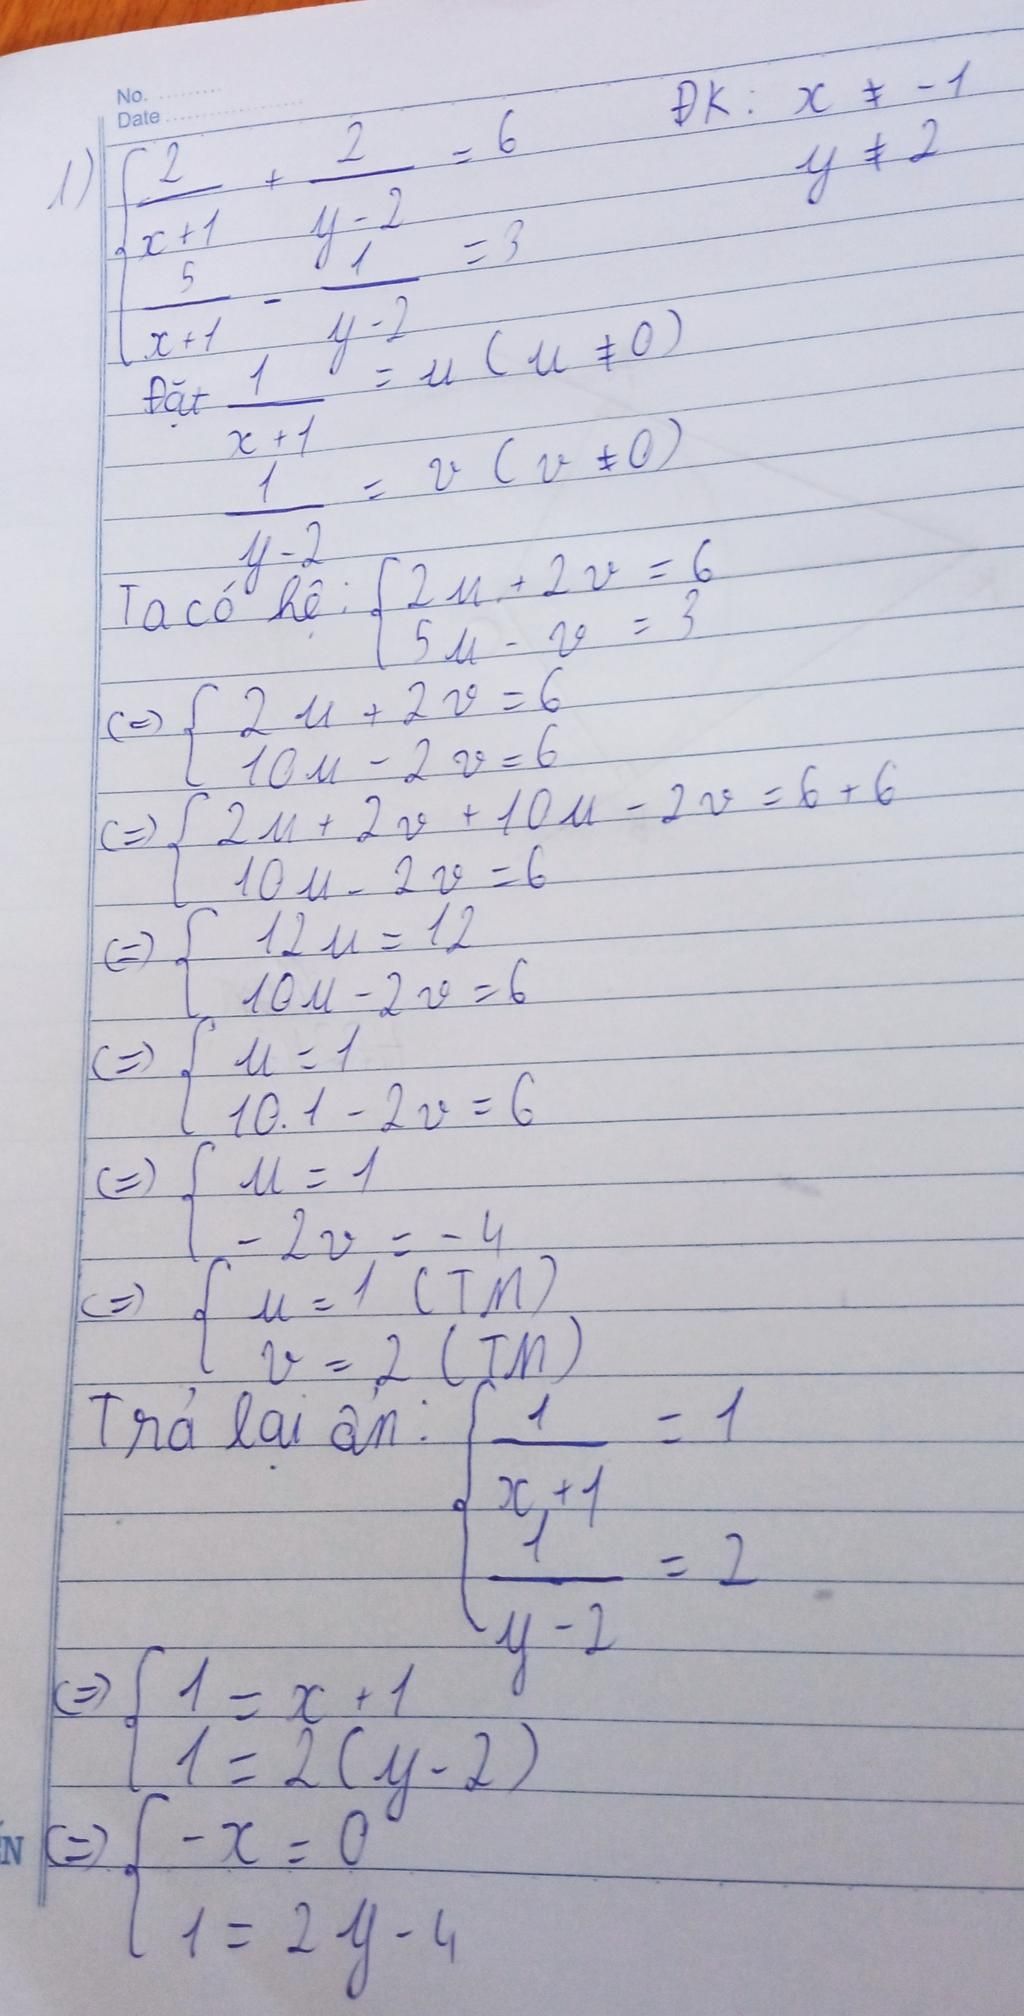 No.
Date
1) { 2/(x+1) + 2/(y-2) = 6 ĐK: x ≠ -1
y ≠ 2
5/(x+1) - 1/(y-2) = 3
Đặt 1/(x+1) = u (u ≠ 0)
1/(y-2) = v (v ≠ 0)
Ta có hệ: { 2u + 2v = 6
5u - v = 3
(=) { 2u + 2v = 6
10u - 2v = 6
(=) { 2u + 2v + 10u - 2v = 6 + 6
10u - 2v = 6
(=) { 12u = 12
10u - 2v = 6
(=) { u = 1
10.1 - 2v = 6
(=) { u = 1
- 2v = - 4
(=) { u = 1 (TM)
v = 2 (TM)
Trả lại ẩn: { 1/(x+1) = 1
1/(y-2) = 2
(=) { 1 = x + 1
1 = 2(y - 2)
(=) { -x = 0
1 = 2y - 4